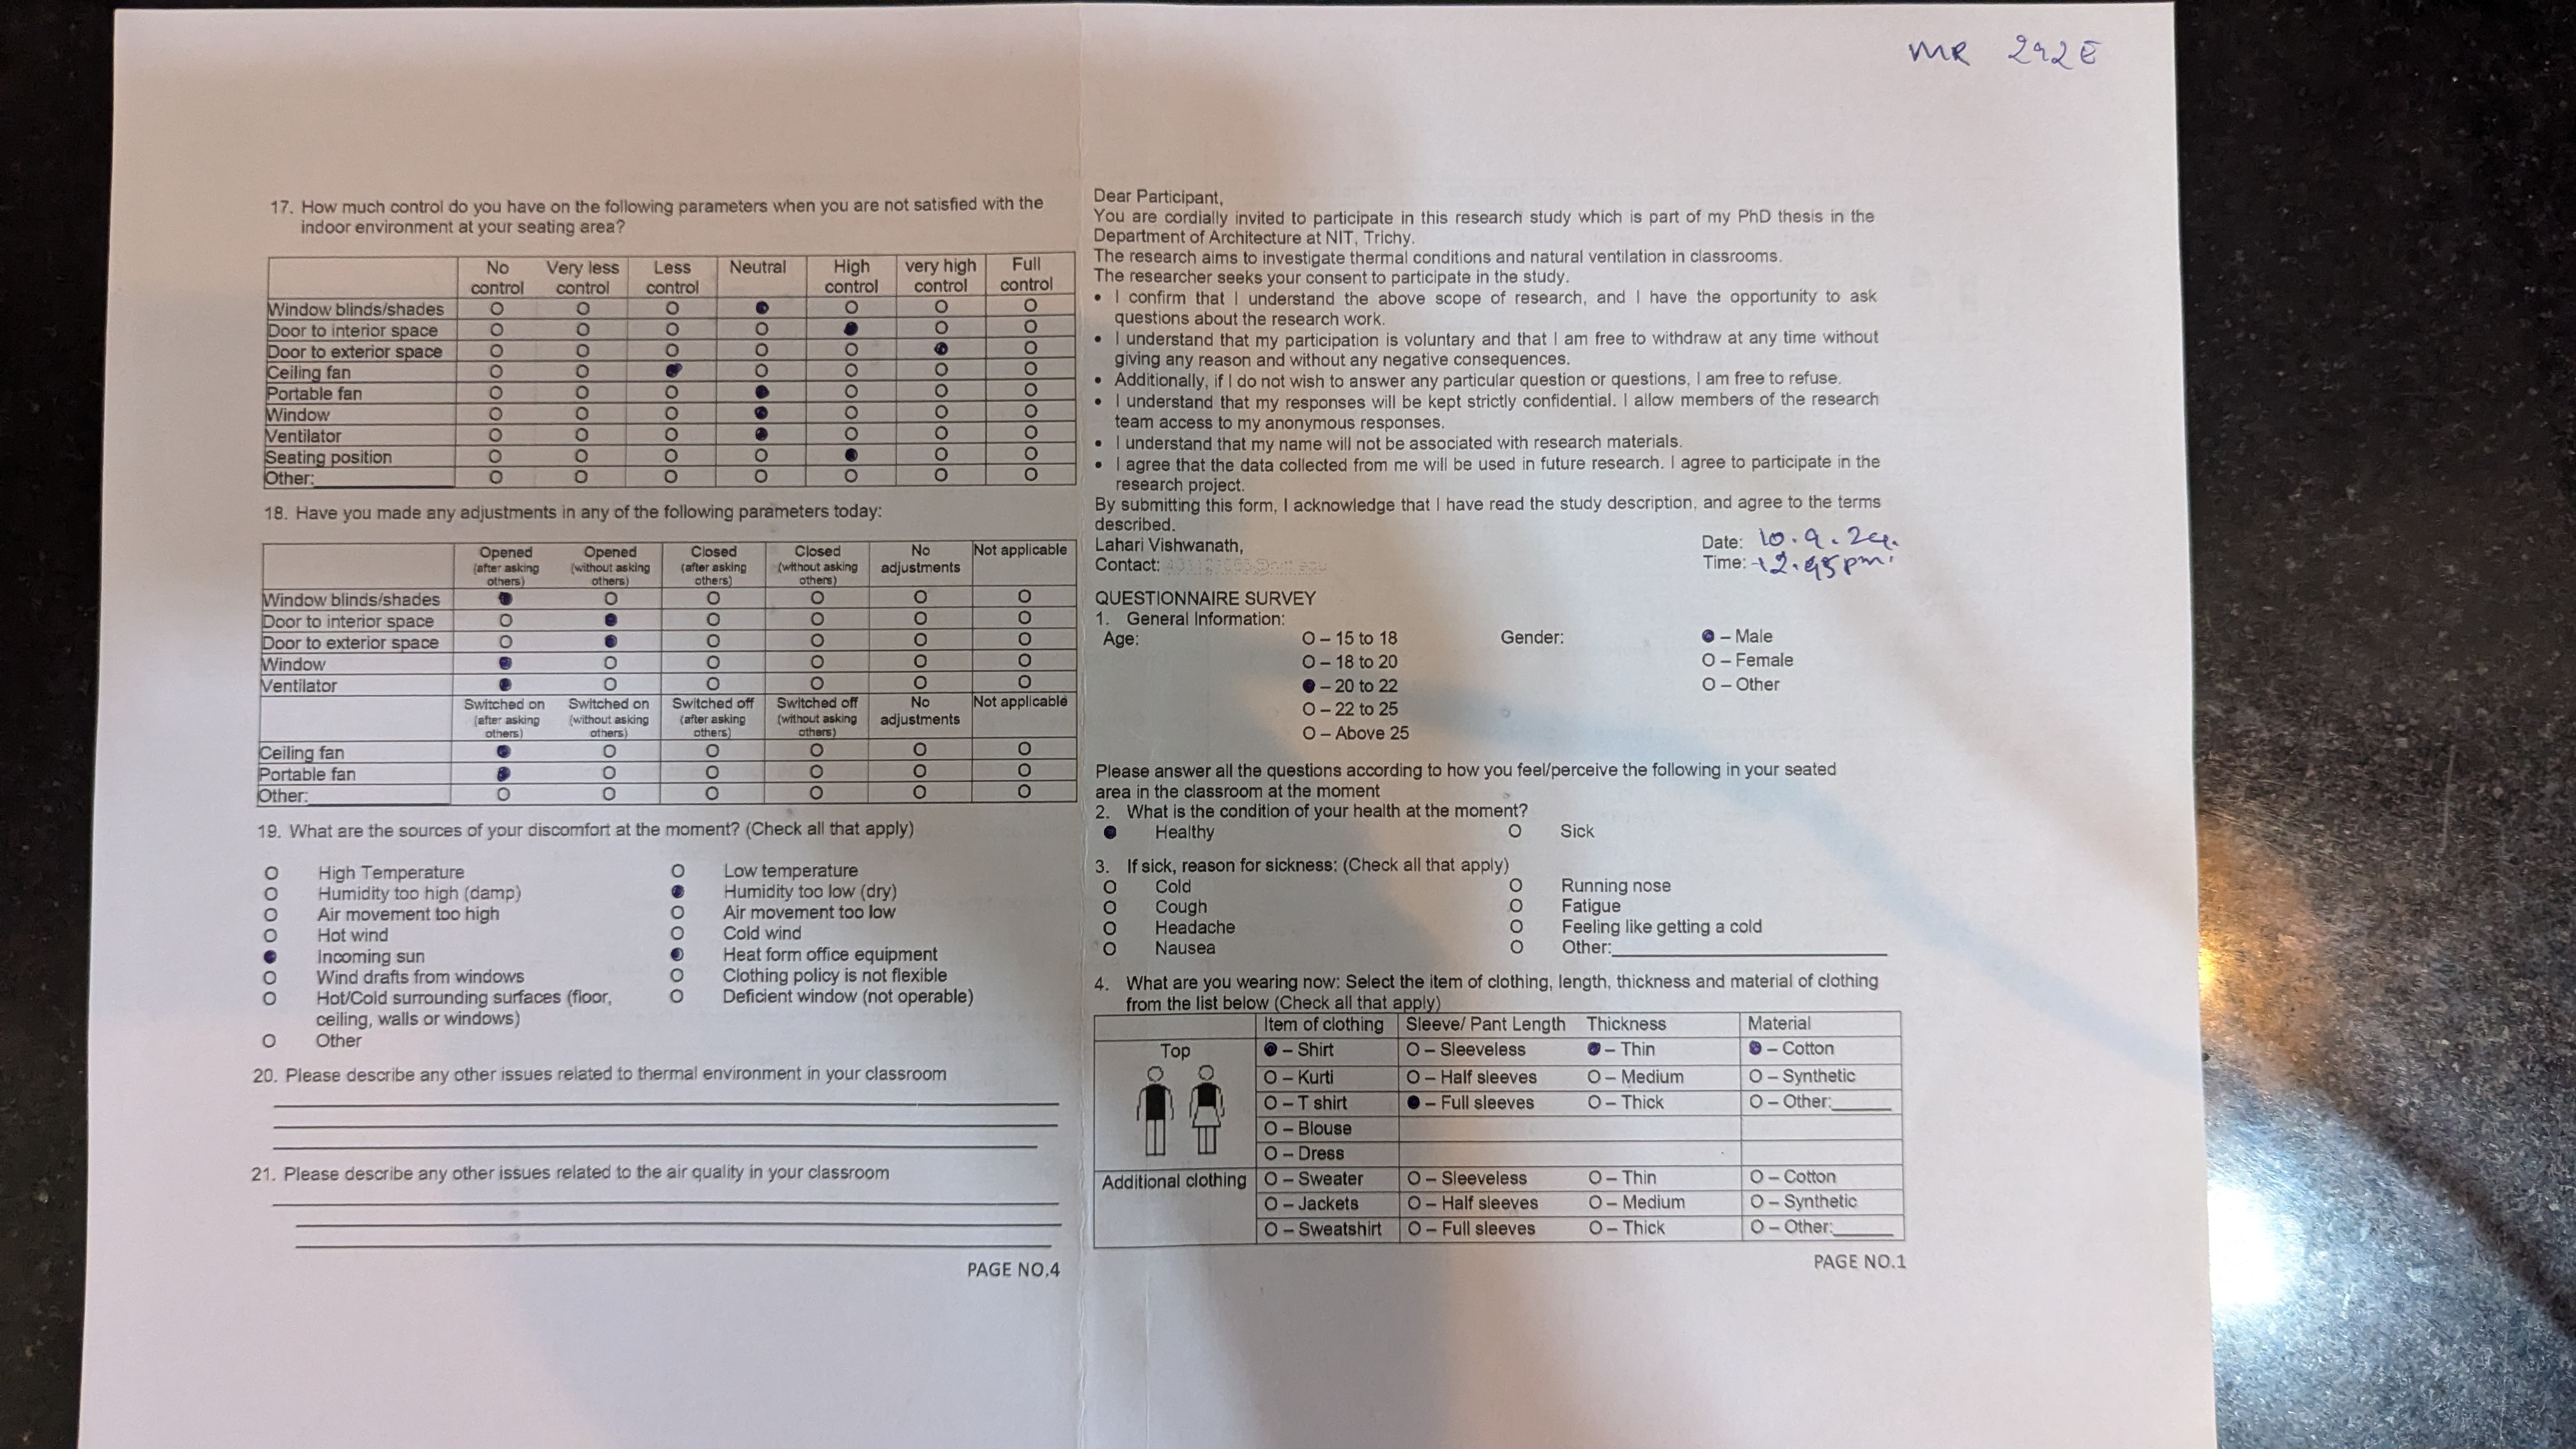 MR 242E
17. How much control do you have on the following parameters when you are not satisfied with the
indoor environment at your seating area?
No control Very less control Less control Neutral High control very high control Full control
Window blinds/shades O O O ● O O O
Door to interior space O O O O ● O O
Door to exterior space O O O O O ● O
Ceiling fan O O ● O O O O
Portable fan O O O ● O O O
Window O O O ● O O O
Ventilator O O O ● O O O
Seating position O O O O ● O O
Other: O O O O O O O
18. Have you made any adjustments in any of the following parameters today:
Opened (after asking others) Opened (without asking others) Closed (after asking others) Closed (without asking others) No adjustments Not applicable
Window blinds/shades ● O O O O O
Door to interior space O ● O O O O
Door to exterior space O ● O O O O
Window ● O O O O O
Ventilator ● O O O O O
Switched on (after asking others) Switched on (without asking others) Switched off (after asking others) Switched off (without asking others) No adjustments Not applicable
Ceiling fan ● O O O O O
Portable fan ● O O O O O
Other: O O O O O O
19. What are the sources of your discomfort at the moment? (Check all that apply)
O High Temperature O Low temperature
O Humidity too high (damp) ● Humidity too low (dry)
O Air movement too high O Air movement too low
O Hot wind O Cold wind
● Incoming sun ● Heat form office equipment
O Wind drafts from windows O Clothing policy is not flexible
O Hot/Cold surrounding surfaces (floor, O Deficient window (not operable)
ceiling, walls or windows)
O Other
20. Please describe any other issues related to thermal environment in your classroom
21. Please describe any other issues related to the air quality in your classroom
PAGE NO.4
Dear Participant,
You are cordially invited to participate in this research study which is part of my PhD thesis in the
Department of Architecture at NIT, Trichy.
The research aims to investigate thermal conditions and natural ventilation in classrooms.
The researcher seeks your consent to participate in the study.
• I confirm that I understand the above scope of research, and I have the opportunity to ask
questions about the research work.
• I understand that my participation is voluntary and that I am free to withdraw at any time without
giving any reason and without any negative consequences.
• Additionally, if I do not wish to answer any particular question or questions, I am free to refuse.
• I understand that my responses will be kept strictly confidential. I allow members of the research
team access to my anonymous responses.
• I understand that my name will not be associated with research materials.
• I agree that the data collected from me will be used in future research. I agree to participate in the
research project.
By submitting this form, I acknowledge that I have read the study description, and agree to the terms
described.
Lahari Vishwanath, Date: 10.9.24.
Contact: Time: 12.45pm.
QUESTIONNAIRE SURVEY
1. General Information:
Age: O – 15 to 18 Gender: ● – Male
O – 18 to 20 O – Female
● – 20 to 22 O – Other
O – 22 to 25
O – Above 25
Please answer all the questions according to how you feel/perceive the following in your seated
area in the classroom at the moment
2. What is the condition of your health at the moment?
● Healthy O Sick
3. If sick, reason for sickness: (Check all that apply)
O Cold O Running nose
O Cough O Fatigue
O Headache O Feeling like getting a cold
O Nausea O Other:
4. What are you wearing now: Select the item of clothing, length, thickness and material of clothing
from the list below (Check all that apply)
Item of clothing Sleeve/ Pant Length Thickness Material
Top ● – Shirt O – Sleeveless ● – Thin ● – Cotton
O – Kurti O – Half sleeves O – Medium O – Synthetic
O – T shirt ● – Full sleeves O – Thick O – Other:
O – Blouse
O – Dress
Additional clothing O – Sweater O – Sleeveless O – Thin O – Cotton
O – Jackets O – Half sleeves O – Medium O – Synthetic
O – Sweatshirt O – Full sleeves O – Thick O – Other:
PAGE NO.1